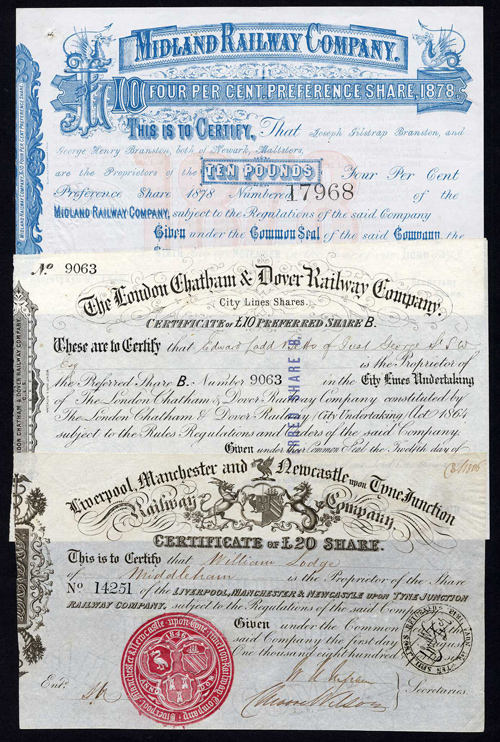 MIDLAND RAILWAY COMPANY.
£10 FOUR PER CENT. PREFERENCE SHARE, 1878.
THIS IS TO CERTIFY, That Joseph Gilstrap Branston, and
George Henry Branston, both of Newark, Maltsters,
are the Proprietors of the TEN POUNDS Four Per Cent
Preference Share 1878 Numbered 17968 of the
MIDLAND RAILWAY COMPANY, subject to the Regulations of the said Company
Given under the Common Seal of the said Company, the
No 9063
The London Chatham & Dover Railway Company.
City Lines Shares.
CERTIFICATE OF £10 PREFERRED SHARE B.
These are to Certify that Edward Ladd of Great George St S W
Esq is the Proprietor of
the Preferred Share B. Number 9063 in the City Lines Undertaking
of The London Chatham & Dover Railway Company constituted by
The London Chatham & Dover Railway (City Undertaking) Act 1864
subject to the Rules Regulations and Orders of the said Company.
Given under their Common Seal the Twelfth day of
Liverpool, Manchester and Newcastle upon Tyne Junction
Railway Company
CERTIFICATE OF £20 SHARE.
This is to Certify that William Lodge
of Middleham is the Proprietor of the Share
No 14251 of the LIVERPOOL, MANCHESTER & NEWCASTLE UPON TYNE JUNCTION
RAILWAY COMPANY, subject to the Regulations of the said Company
Given under the Common
said Company the first day August
One thousand eight hundred
1846
Entd.
Secretaries.